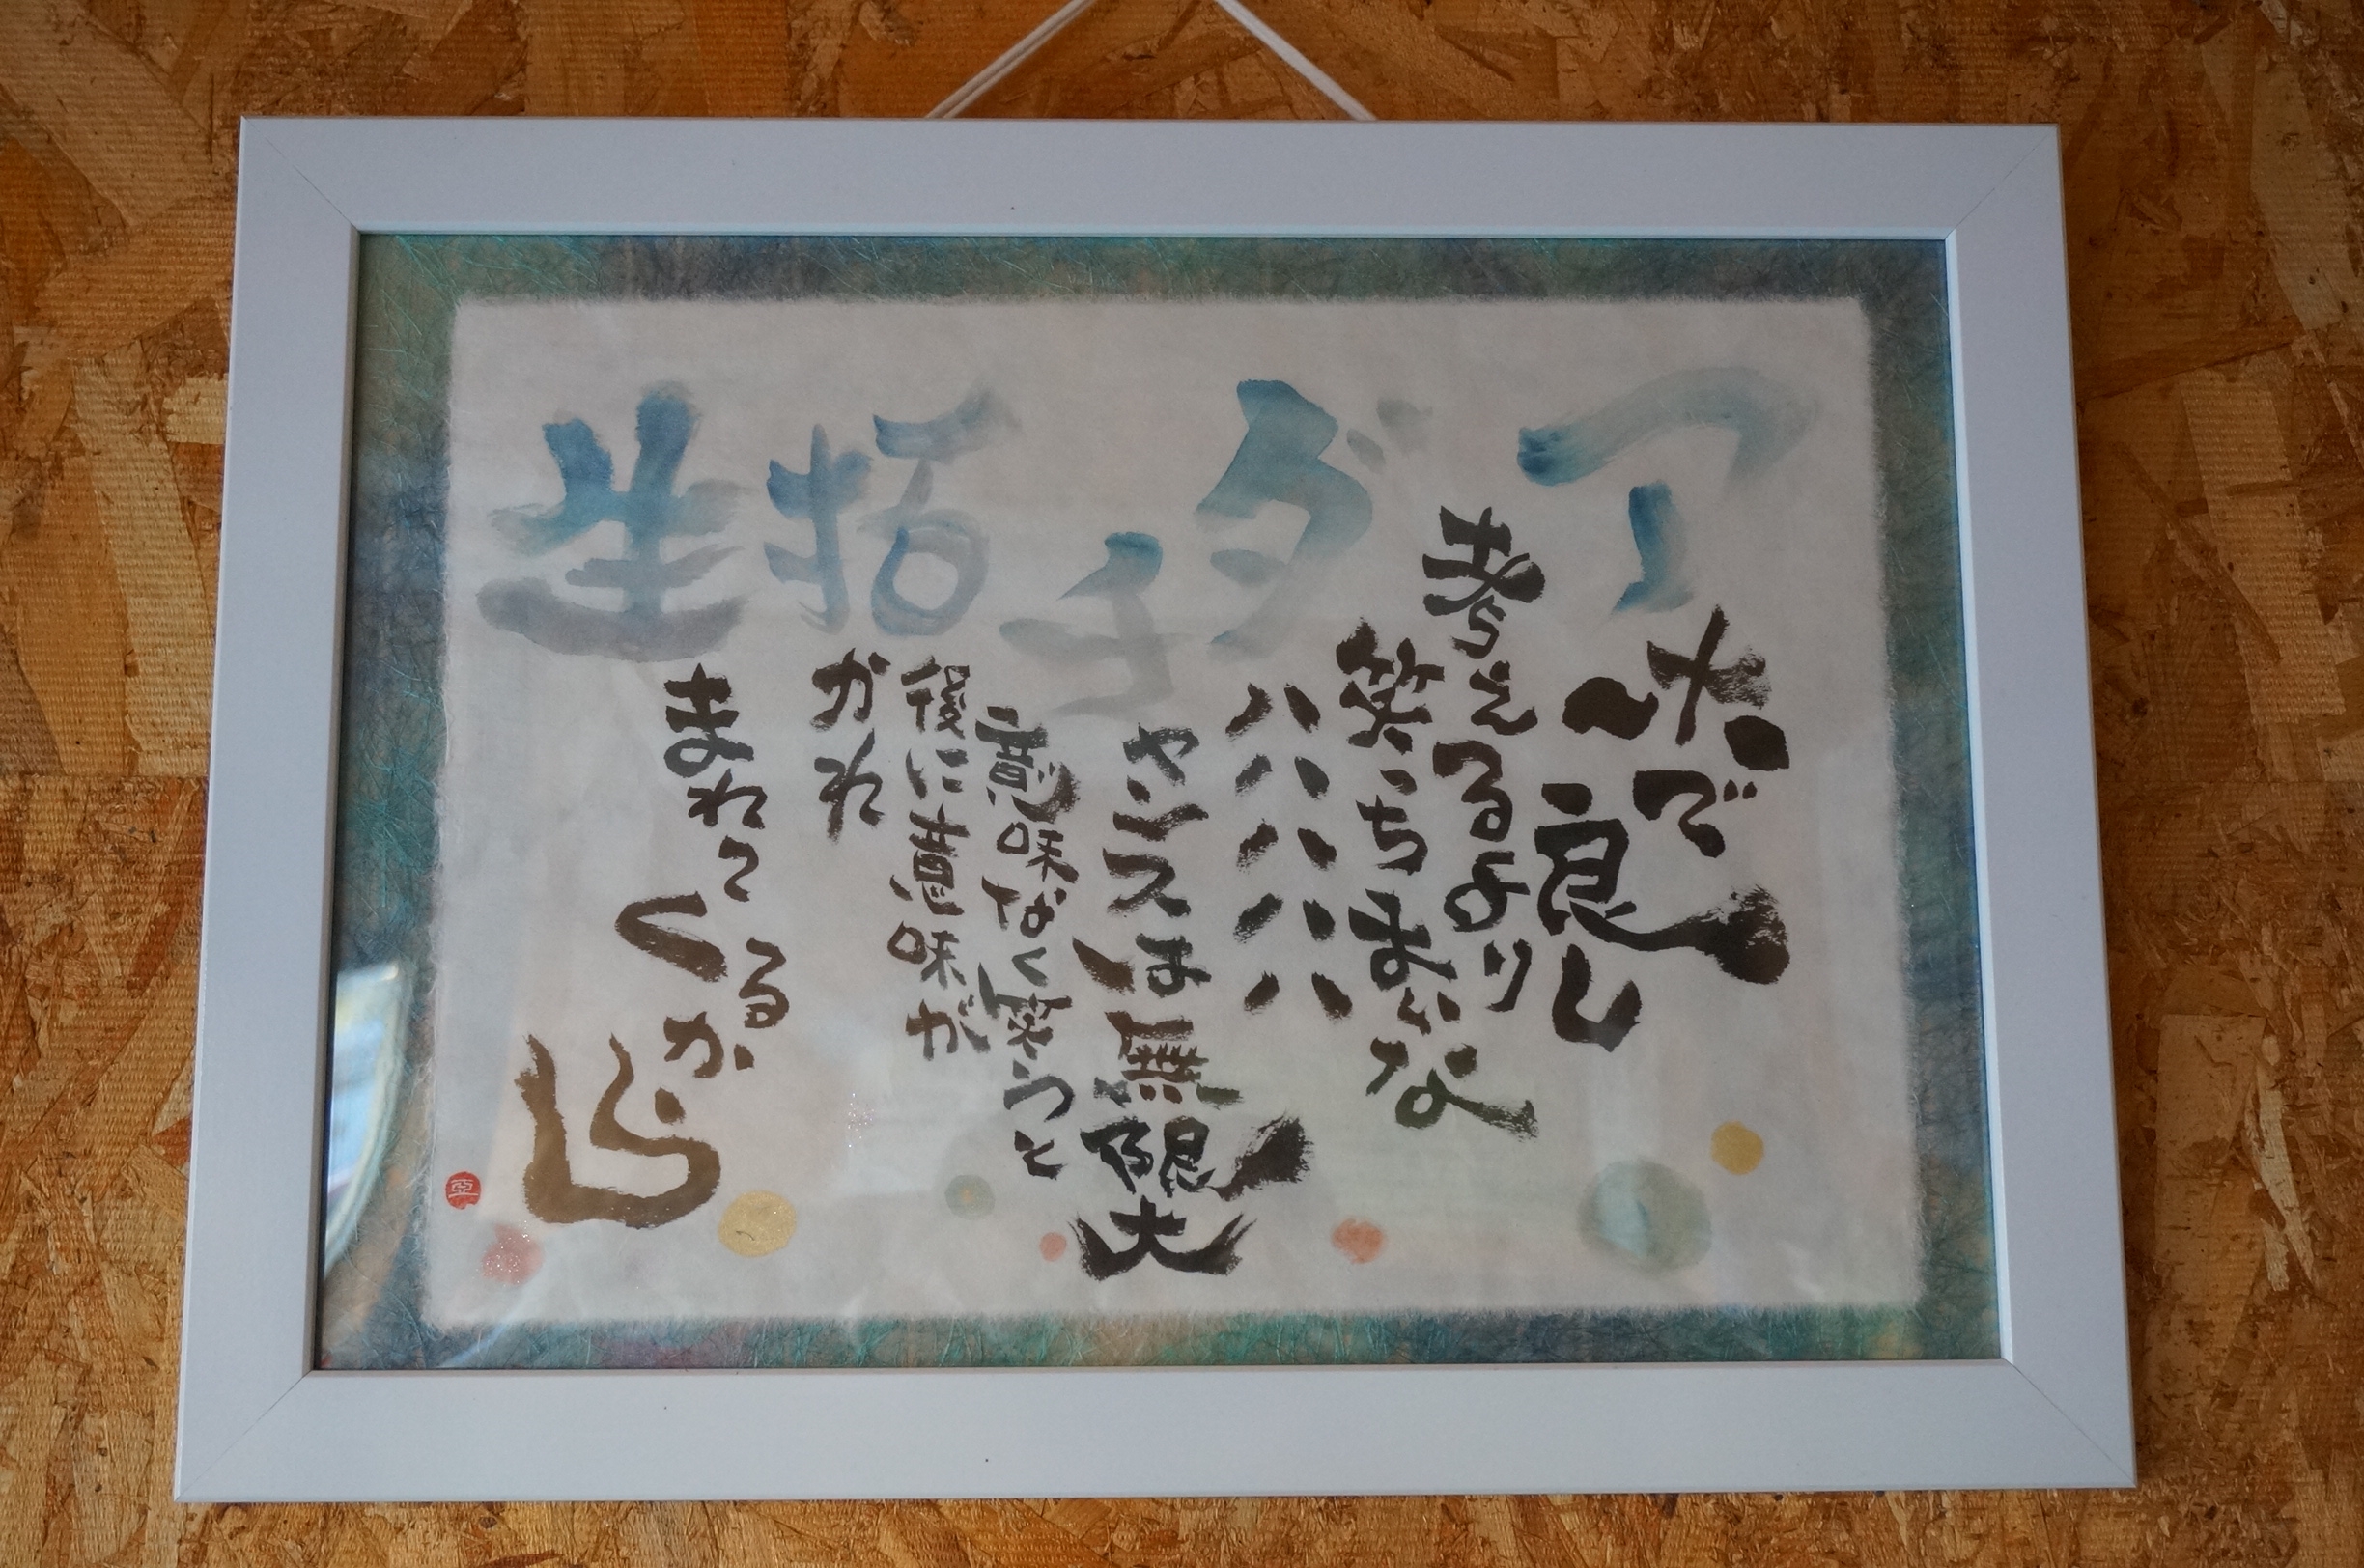 アホで
良し
考えるより
笑っちまいな
ダハハハハハ
チャンスは無限大
意味なく笑うと
後に意味が
活かれ
生まれてくるから
亞